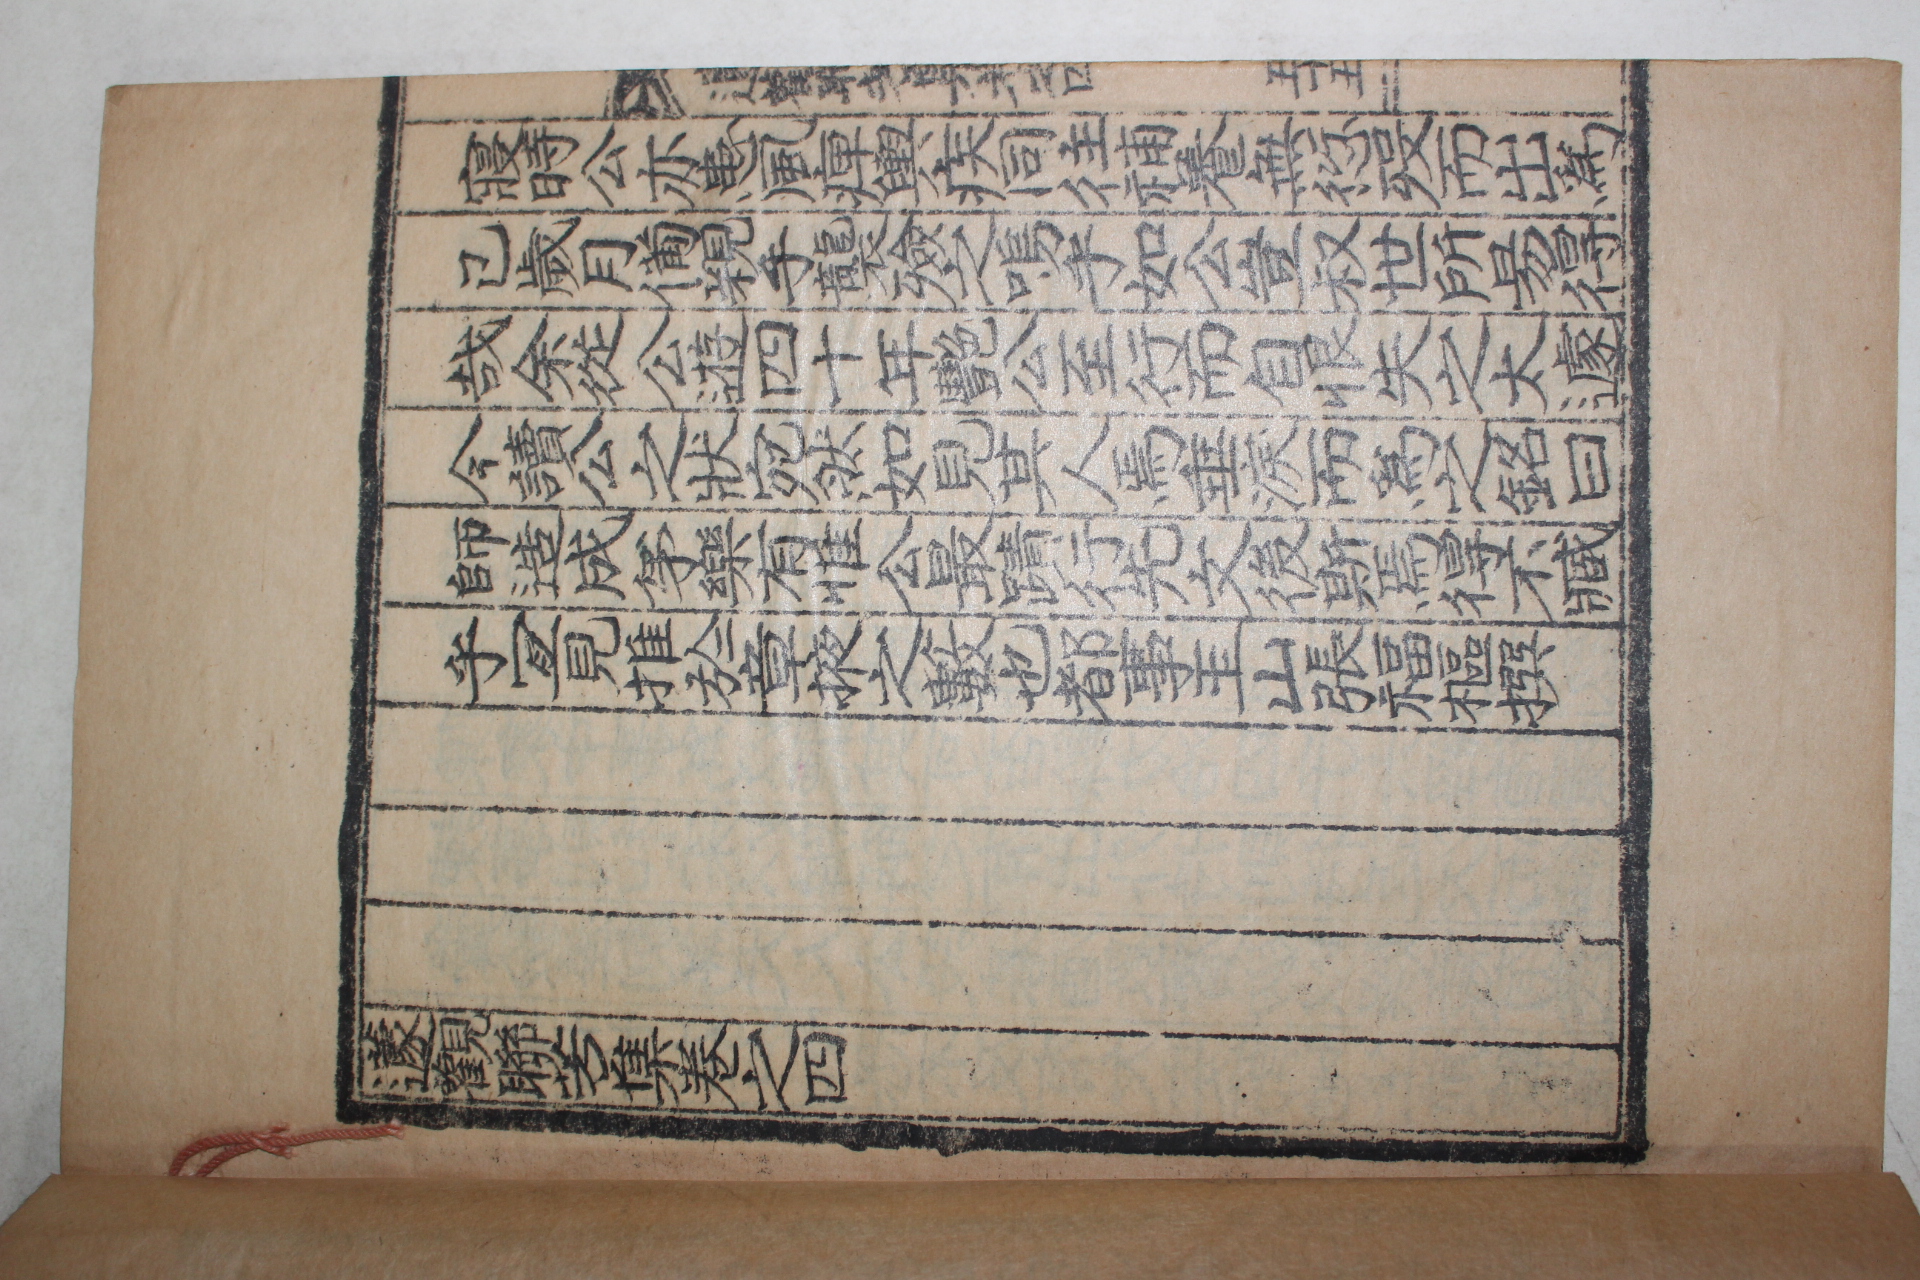 寢時公亦患風痺輿疾同往補養無愆歿而出爲
己歲月備親手襲殮之嗚乎如公豈叔世所易得
哉余從公遊四十年艷公至行而自恨失之太遽
今讀公之狀宛然如見其人焉垂淚而爲之銘曰
師造成㐧樂有惟公最蹟行先文後斯焉得不臧
乎宜見推於章掖之藪也都事玉山張福樞撰
蘧觀聯芳集卷之四
蘧觀聯芳集卷之四
五十五